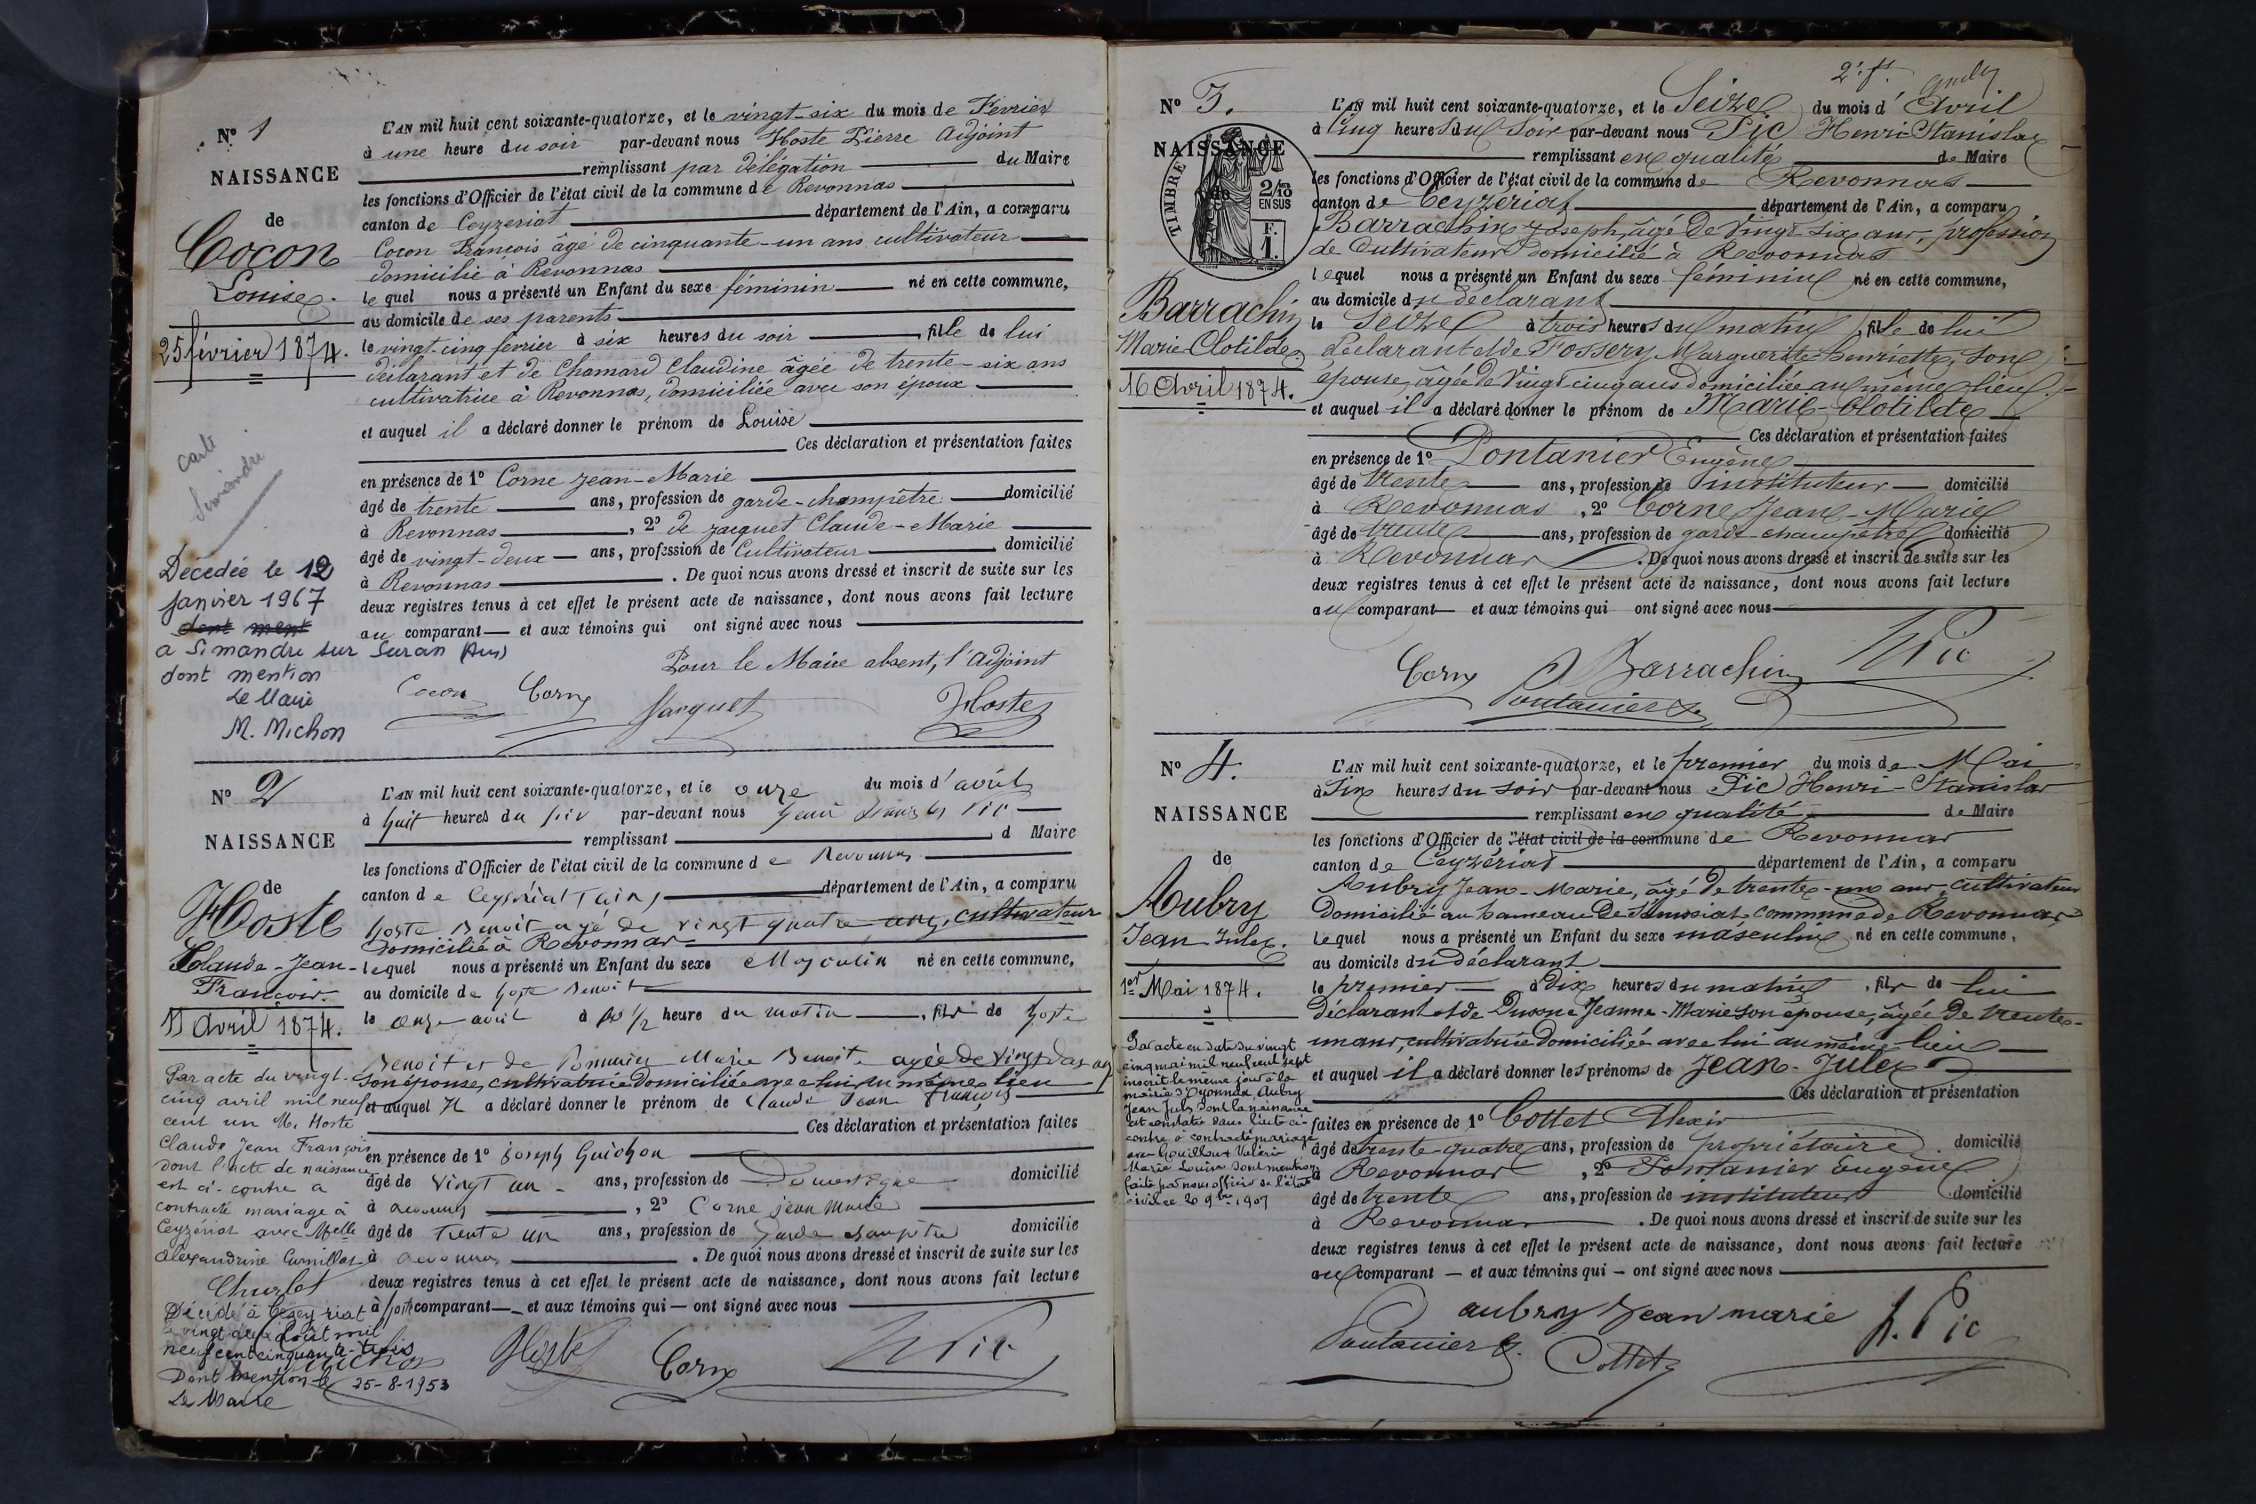 N° 1
NAISSANCE
de
Cocon
Louise.
25 février 1874.
carte
Simandre
Décédée le 12
janvier 1967
dont ment
a Simandre sur Suran (Ain)
dont mention
Le Maire
M. Michon
L'AN mil huit cent soixante-quatorze, et le vingt-six du mois de Février
à une heure du soir par-devant nous Hoste Pierre Adjoint
remplissant par délégation du Maire
les fonctions d'Officier de l'état civil de la commune de Revonnas
canton de Ceyzeriat département de l'Ain, a comparu
Cocon François âgé de cinquante-un ans cultivateur
domicilié à Revonnas
lequel nous a présenté un Enfant du sexe féminin né en cette commune,
au domicile de ses parents
le vingt-cinq février à six heures du soir fille de lui
déclarant et de Chamard Claudine âgée de trente-six ans
cultivatrice à Revonnas, domiciliée avec son époux
et auquel il a déclaré donner le prénom de Louise
Ces déclaration et présentation faites
en présence de 1° Corne Jean-Marie
âgé de trente ans, profession de garde-champêtre domicilié
à Revonnas, 2° de Jacquet Claude-Marie
âgé de vingt-deux ans, profession de Cultivateur domicilié
à Revonnas. De quoi nous avons dressé et inscrit de suite sur les
deux registres tenus à cet effet le présent acte de naissance, dont nous avons fait lecture
au comparant et aux témoins qui ont signé avec nous
Pour le Maire absent, l'Adjoint
Cocon Corne Jacquet Hoste
N° 2
NAISSANCE
de
Hoste
Claude-Jean-
François.
11 Avril 1874.
Par acte du vingt-
cinq avril mil neuf
cent un M. Hoste
Claude Jean François
dont l'acte de naissance
est ci-contre a
contracté mariage à
Ceyzériat avec Melle
Alexandrine
Décédé à Ceyzériat
le vingt deux Août mil
neuf cent cinquante-trois
Dont mention le 25-8-1953
Le Maire
L'AN mil huit cent soixante-quatorze, et le onze du mois d'avril
à huit heures du soir par-devant nous Henri Stanislas Pic
remplissant d Maire
les fonctions d'Officier de l'état civil de la commune de Revonnas
canton de Ceyzériat (ain) département de l'Ain, a comparu
hoste Benoit agé de vingt quatre ans, cultivateur
Domicilié à Revonnas
lequel nous a présenté un Enfant du sexe Masculin né en cette commune,
au domicile de hoste Benoit
le onze avril à 1/2 heure du matin, fils de hoste
Benoit et de Marie Benoite agée de vingt
son épouse, cultivatrice Domiciliée avec lui au même lieu
et auquel Il a déclaré donner le prénom de Claude Jean François
Ces déclaration et présentation faites
en présence de 1° Joseph Guichon
âgé de vingt un ans, profession de Domestique domicilié
à Revonnas, 2° Corne jean Marie
âgé de trente un ans, profession de Garde champêtre domicilié
à Revonnas. De quoi nous avons dressé et inscrit de suite sur les
deux registres tenus à cet effet le présent acte de naissance, dont nous avons fait lecture
à hoste comparant et aux témoins qui ont signé avec nous
Guichon Hoste Corne H Pic
2e ft.
N° 3.
NAISSANCE
de
TIMBRE
2/10 EN SUS
F. 1.
Barrachin
Marie-Clotilde.
16 Avril 1874.
L'AN mil huit cent soixante-quatorze, et le Seize du mois d'Avril
à Cinq heures du Soir par-devant nous Pic Henri-Stanislas
remplissant en qualité de Maire
les fonctions d'Officier de l'état civil de la commune de Revonnas
canton de Ceyzeriat département de l'Ain, a comparu
Barrachin Joseph, âgé de Vingt-six ans, profession
de Cultivateur domicilié à Revonnas
lequel nous a présenté un Enfant du sexe féminin né en cette commune,
au domicile du déclarant
le Seize à trois heures du matin fille de lui
déclarant et de Fossery Marguerite-henriette, son
épouse, âgée de Vingt-cinq ans domiciliée au même lieu.
et auquel il a déclaré donner le prénom de Marie-Clotilde
Ces déclaration et présentation faites
en présence de 1° Pontanier Eugène
âgé de trente ans, profession de instituteur domicilié
à Revonnas, 2° Corne Jean-Marie
âgé de trente ans, profession de garde-champêtre domicilié
à Revonnas. De quoi nous avons dressé et inscrit de suite sur les
deux registres tenus à cet effet le présent acte de naissance, dont nous avons fait lecture
au comparant et aux témoins qui ont signé avec nous
Corne J Barrachin H Pic
Pontanier E.
N° 4.
NAISSANCE
de
Aubry
Jean Jules.
1er Mai 1874.
Par acte en date du vingt
cinq mai mil neuf cent sept
inscrit le meme jour à la
mairie d'Oyonnax, Aubry
Jean Jules dont la naissance
est constatée dans l'acte ci-
contre a contracté mariage
avec Gouilloux Valérie
Marie Louise dont mention
faite par nous officier de l'état
civil ce 20 9bre 1907
L'AN mil huit cent soixante-quatorze, et le premier du mois de Mai
à Six heures du soir par-devant nous Pic Henri-Stanislas
remplissant en qualité de Maire
les fonctions d'Officier de l'état civil de la commune de Revonnas
canton de Ceyzériat département de l'Ain, a comparu
Aubry Jean-Marie, âgé de trente-un ans, cultivateur
Domicilié au hameau de Senissiat commune de Revonnas
lequel nous a présenté un Enfant du sexe masculin né en cette commune,
au domicile du déclarant
le premier à Dix heures du matin, fils de lui
déclarant et de Jeanne-Marie son épouse, âgée de trente-
un ans, cultivatrice Domiciliée avec lui au même lieu
et auquel il a déclaré donner les prénoms de Jean-Jules
Ces déclaration et présentation
faites en présence de 1° Cottet Alexis
âgé de trente-quatre ans, profession de propriétaire domicilié
à Revonnas, 2° Pontanier Eugène
âgé de trente ans, profession de instituteur domicilié
à Revonnas. De quoi nous avons dressé et inscrit de suite sur les
deux registres tenus à cet effet le présent acte de naissance, dont nous avons fait lecture
au comparant et aux témoins qui ont signé avec nous
aubry Jean marie
Pontanier E. Cottet h. Pic